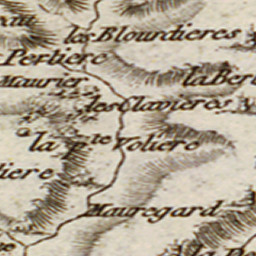 les Blourdieres
Perliere
Maurier
la Ber
les Clavieres
la p.te Voliere
liere
Mauregard
la